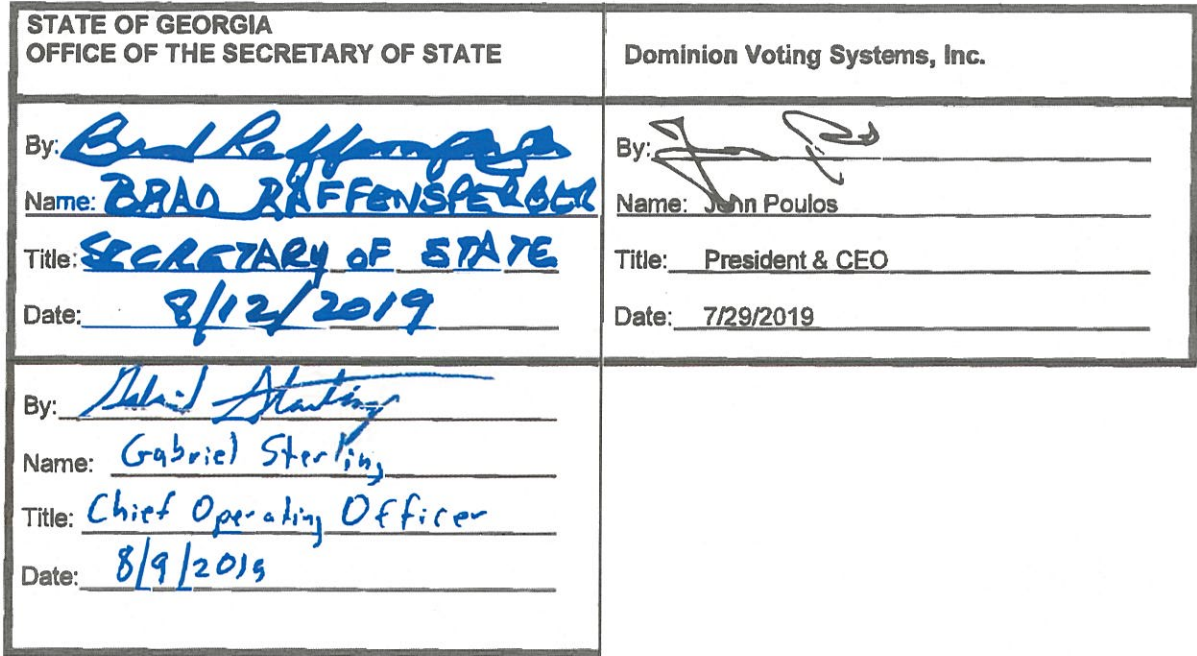 STATE OF GEORGIA
OFFICE OF THE SECRETARY OF STATE
By: Brad Raffensperger
Name: BRAD RAFFENSPERGER
Title: SECRETARY OF STATE
Date: 8/12/2019
By: Gabriel Sterling
Name: Gabriel Sterling
Title: Chief Operating Officer
Date: 8/9/2019
Dominion Voting Systems, Inc.
By:
Name: John Poulos
Title: President & CEO
Date: 7/29/2019